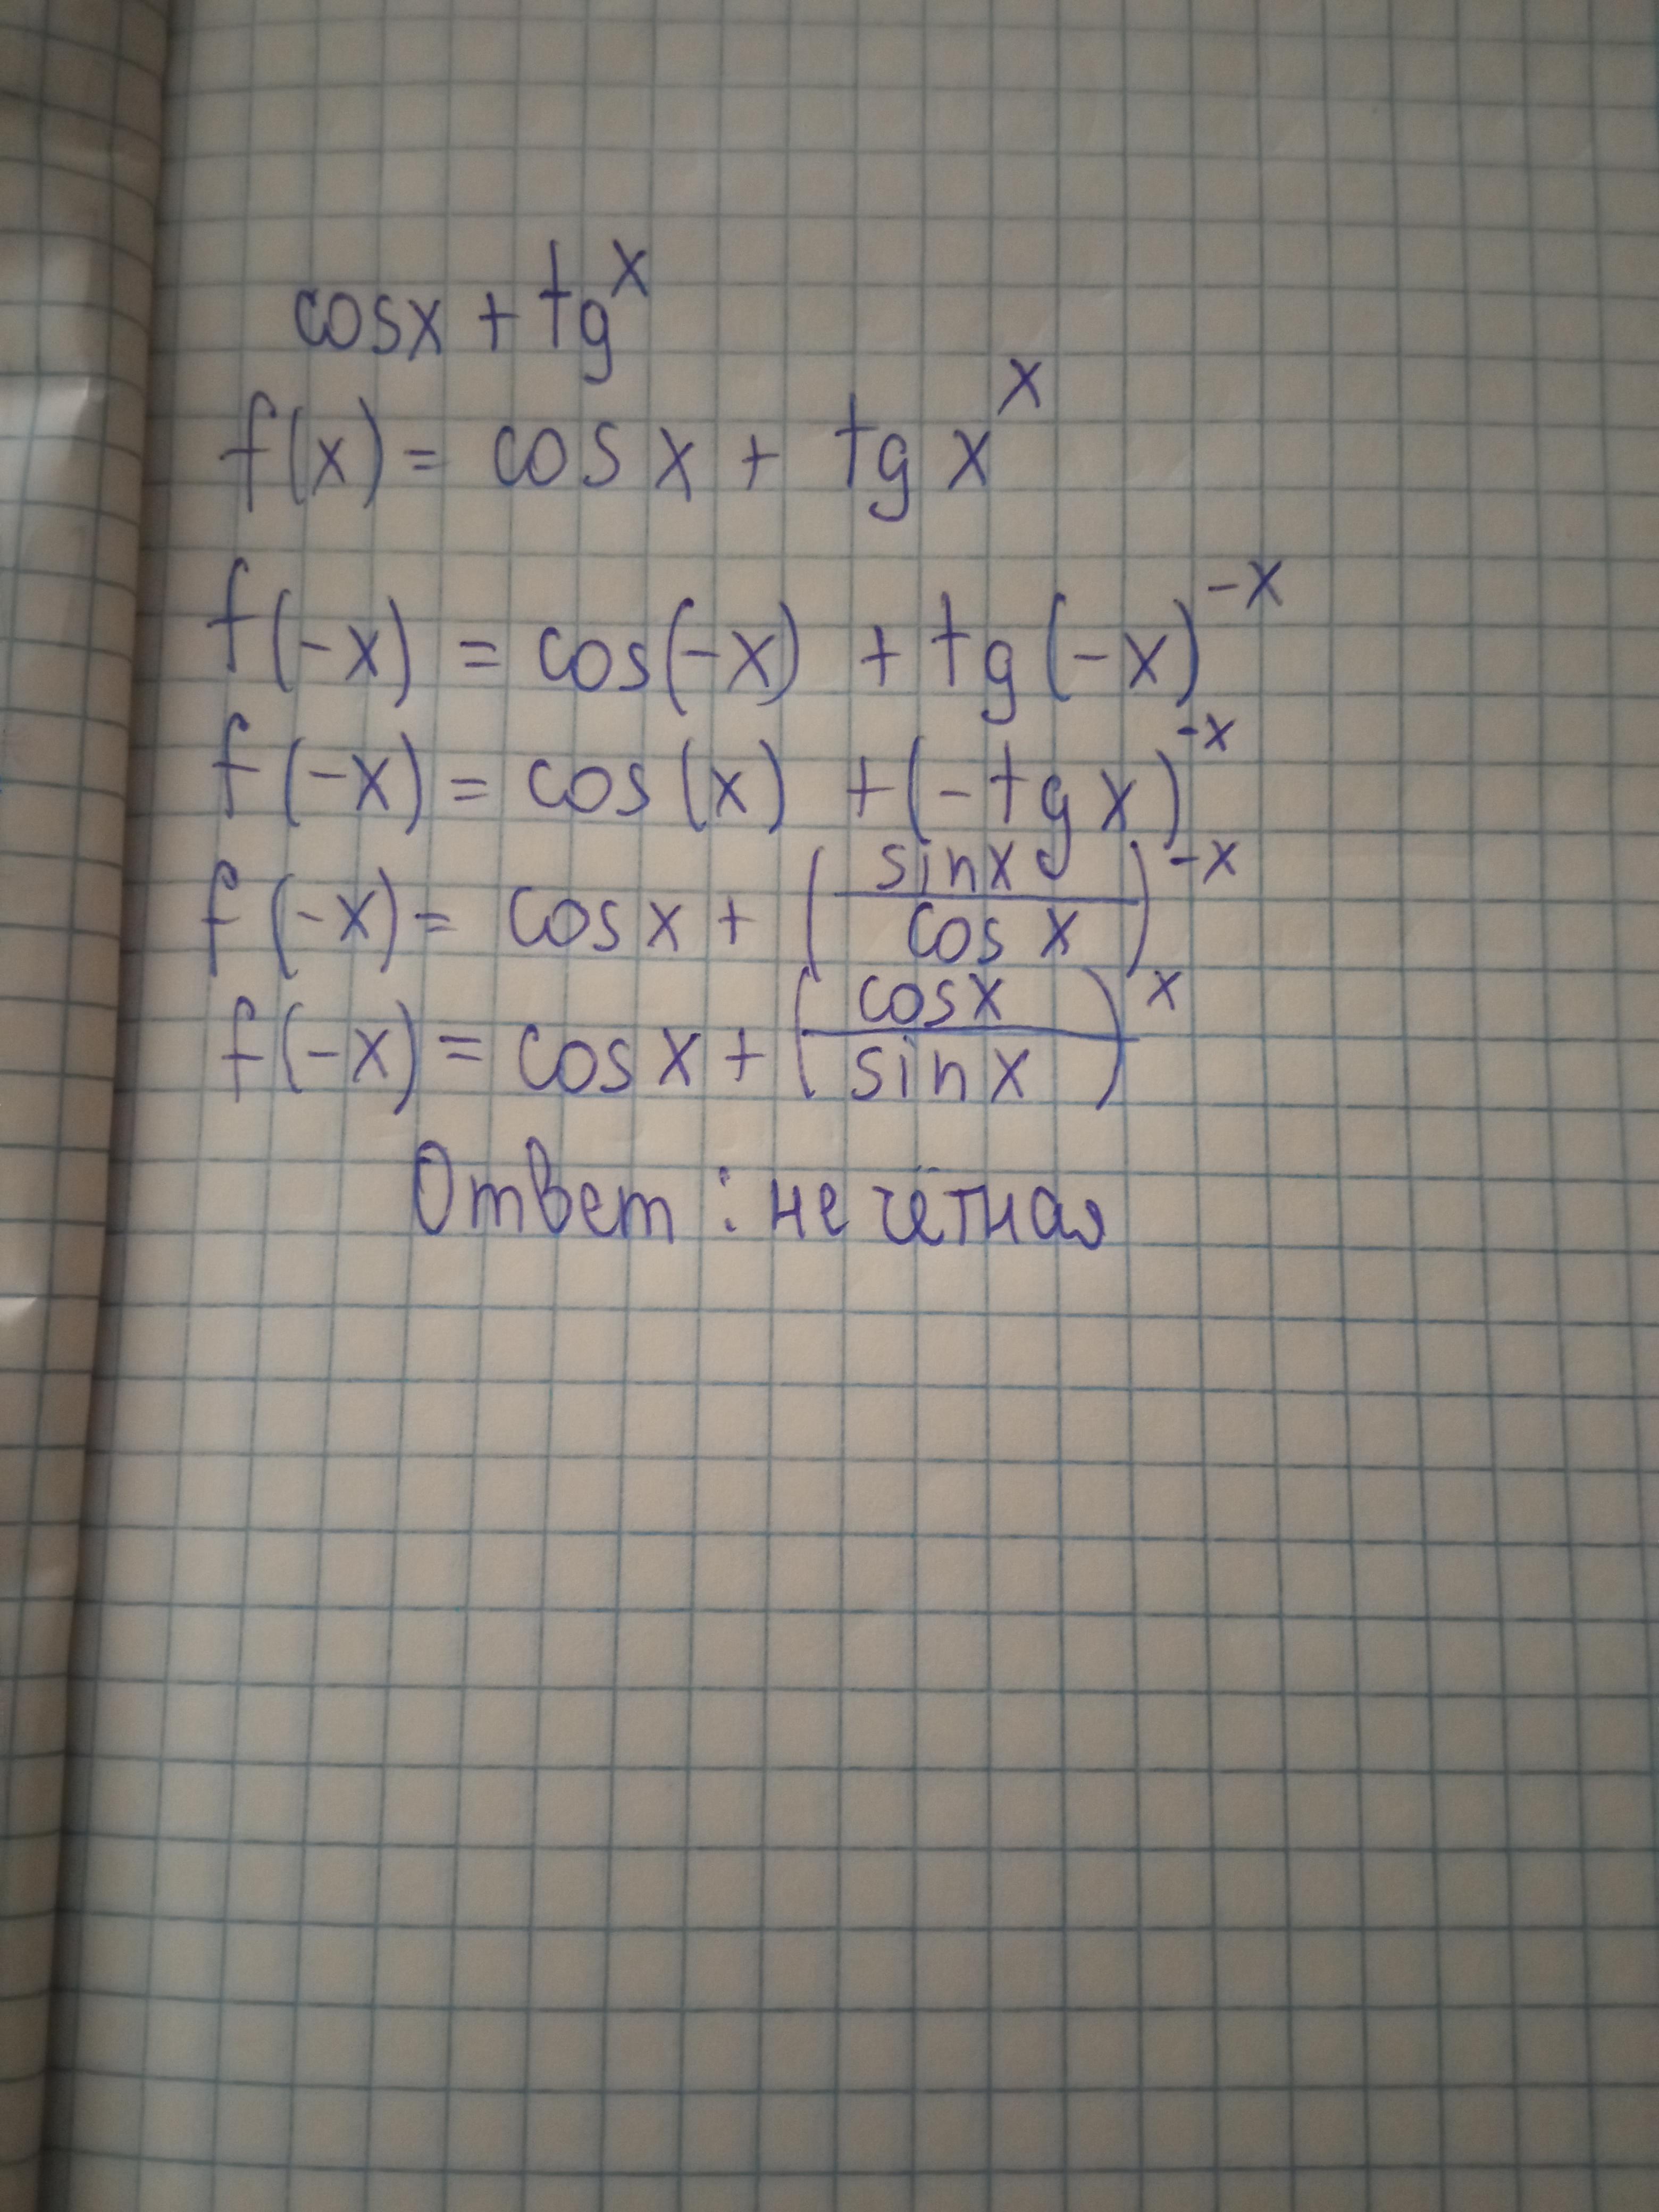 cosx + tg^x
f(x) = cos x + tg x^x
f(-x) = cos(-x) + tg(-x)^-x
f(-x) = cos(x) + (-tg x)^-x
f(-x) = cos x + (sinx/cos x)^-x
f(-x) = cos x + (cosx/sin x)^x
Ответ : не чётная